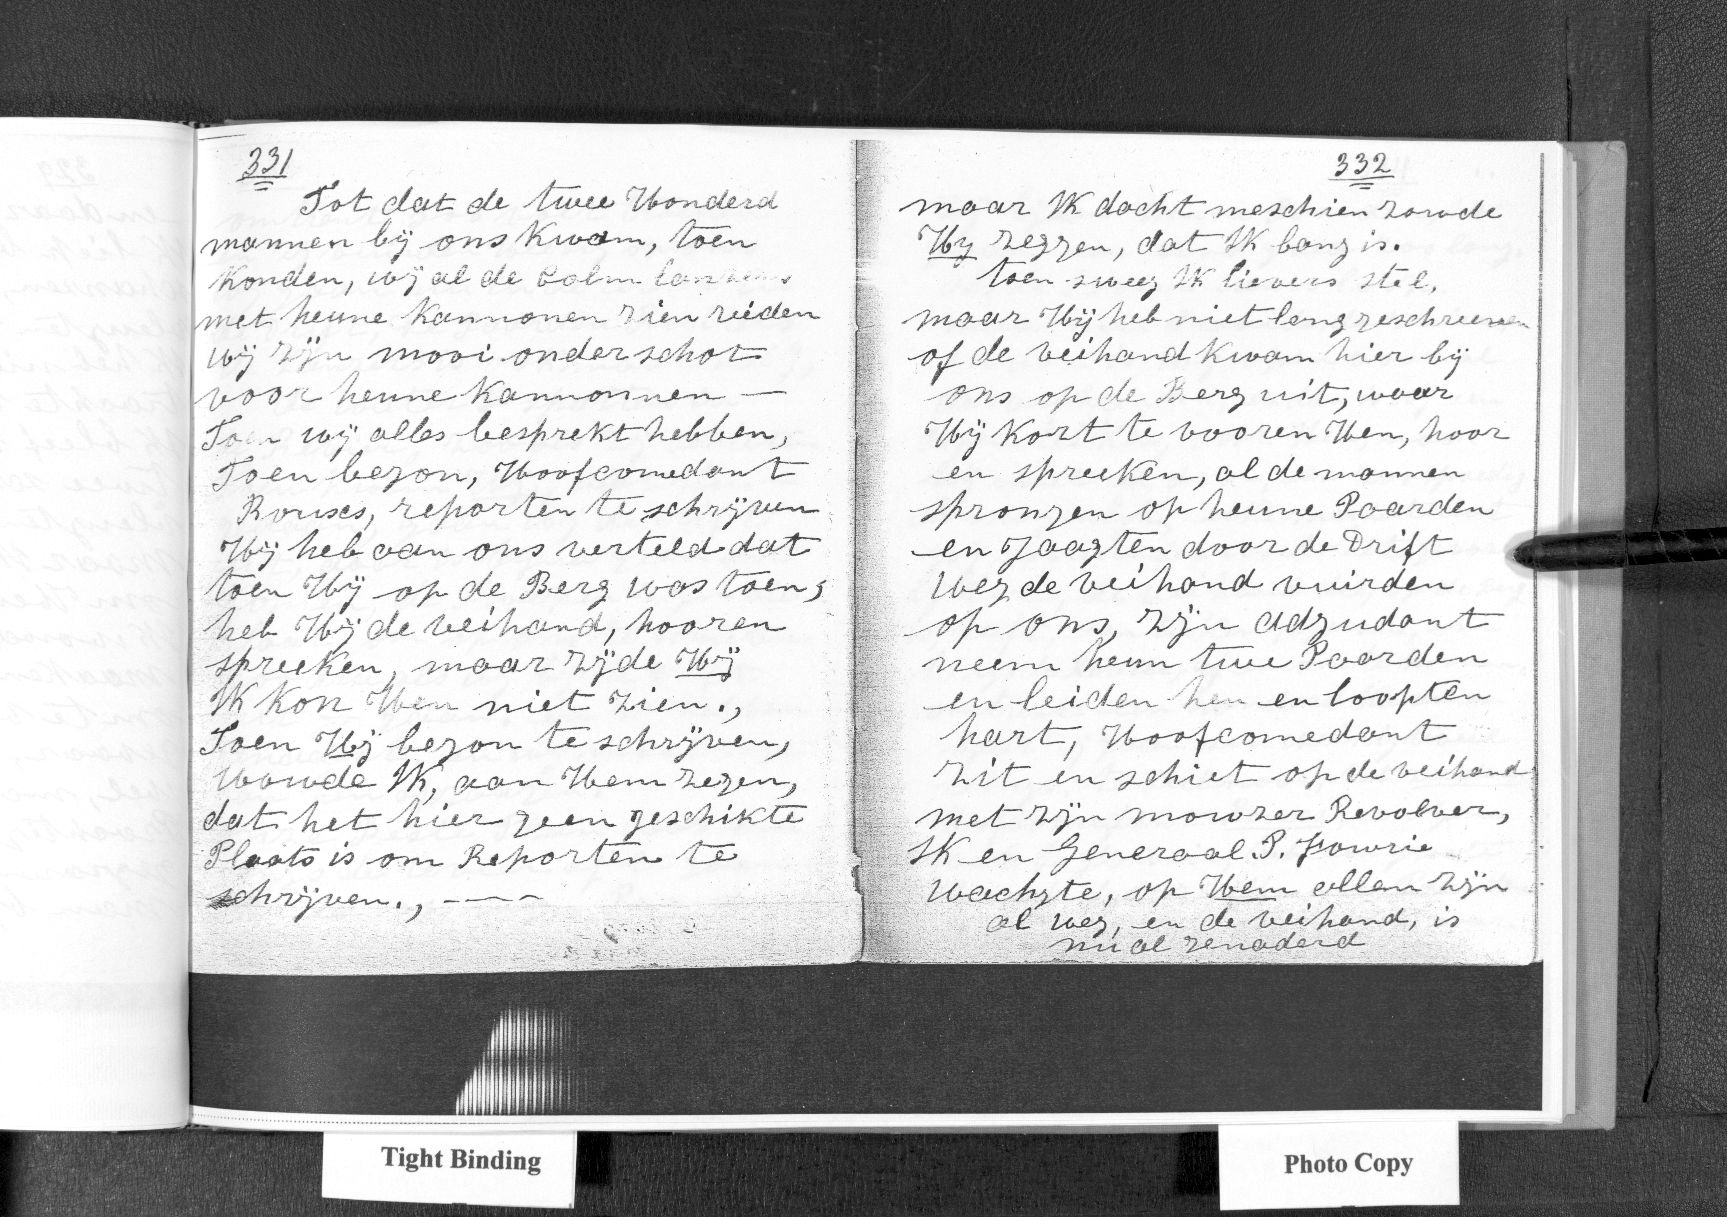 331
Tot dat de twee Honderd
mannen bÿ ons kwam, toen
Konden, wÿ al de Colm
met heune Kannonen zien reiden
wÿ zÿn mooi onder schot
voor heune Kannonnen —
Toen wÿ alles besprekt hebben,
Toen begon, Hoofcomedant
Rouxs, reporten te schrÿven
Hÿ heb aan ons verteld dat
toen Hÿ op de Berg was toen,
heb Hÿ de veihand, hooren
spreeken, maar zÿde Hÿ
IK Kon Hen niet zien.,
Toen Hÿ begon te schrÿven,
Wouwde IK, aan Hem zegen,
dat het hier geen geschikte
Plaats is om Reporten te
schrÿven., - - - -
332
maar IK dacht meschien zouwde
Hy zeggen, dat IK bang is.
toen sweeg IK lievers stel,
maar Hÿ heb niet lang geschreeven
of de veihand Kwam hier bÿ
ons op de Berg uit, waar
Hÿ Kort te vooren Hen, hoor
en spreeken, al de mannen
sprongen op heune Paarden
en Jaagten door de Drift
weg de veihand vuirden
op ons, zÿn adgudant
neem heun twee Paarden
en leiden hen en loopten
hart, Hoofcomedant
zit en schiet op de veihand
met zÿn mowzer Revolver,
IK en Generaal. P. Fowrie
wachgte, op Hem allen zÿn
al weg, en de veihand, is
nu al genaderd
Tight Binding
Photo Copy